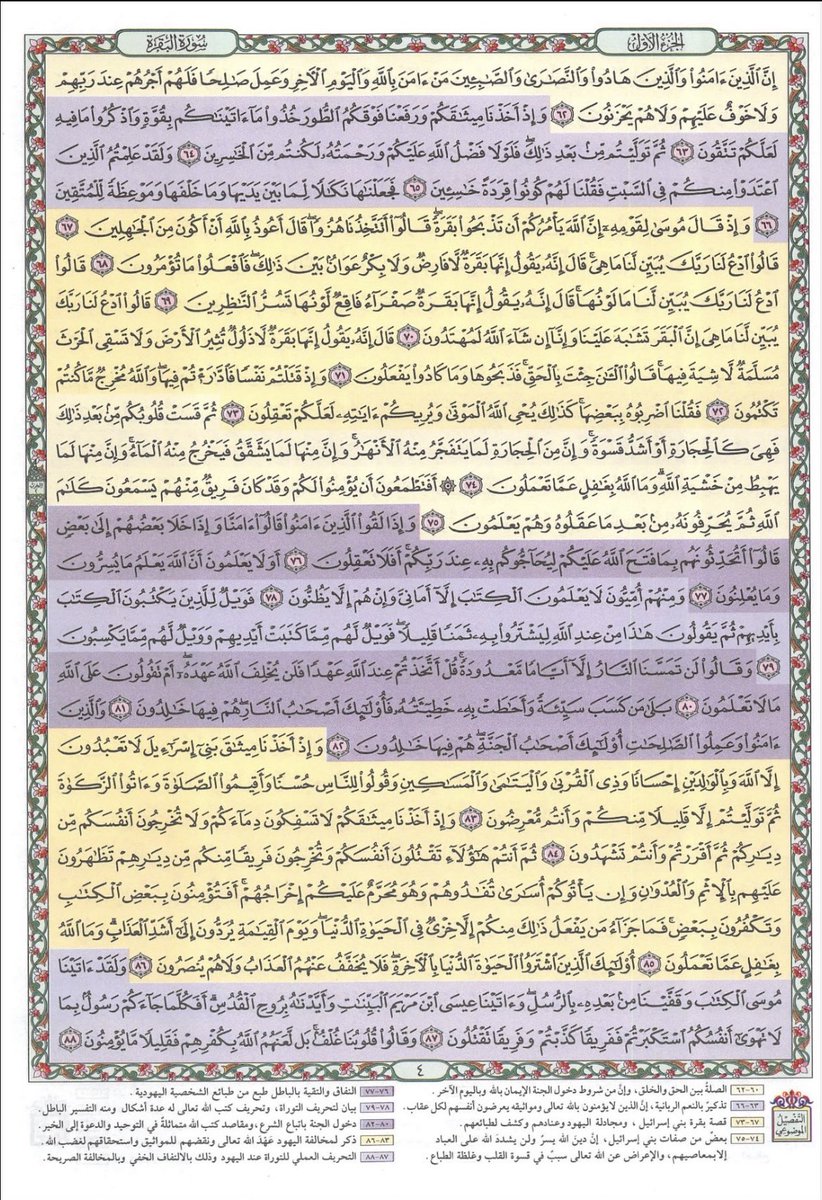 الجزء الأول
سورة البقرة
إِنَّ الَّذِينَ ءَامَنُوا وَالَّذِينَ هَادُوا وَالنَّصَارَى وَالصَّابِئِينَ مَنْ ءَامَنَ بِاللَّهِ وَالْيَوْمِ الْآخِرِ وَعَمِلَ صَالِحًا فَلَهُمْ أَجْرُهُمْ عِندَ رَبِّهِمْ
وَلَا خَوْفٌ عَلَيْهِمْ وَلَا هُمْ يَحْزَنُونَ ٦٢ وَإِذْ أَخَذْنَا مِيثَاقَكُمْ وَرَفَعْنَا فَوْقَكُمُ الطُّورَ خُذُوا مَا ءَاتَيْنَاكُم بِقُوَّةٍ وَاذْكُرُوا مَا فِيهِ
لَعَلَّكُمْ تَتَّقُونَ ٦٣ ثُمَّ تَوَلَّيْتُم مِّنْ بَعْدِ ذَٰلِكَ فَلَوْلَا فَضْلُ اللَّهِ عَلَيْكُمْ وَرَحْمَتُهُ لَكُنتُم مِّنَ الْخَاسِرِينَ ٦٤ وَلَقَدْ عَلِمْتُمُ الَّذِينَ
اعْتَدَوْا مِنكُمْ فِي السَّبْتِ فَقُلْنَا لَهُمْ كُونُوا قِرَدَةً خَاسِئِينَ ٦٥ فَجَعَلْنَاهَا نَكَالًا لِّمَا بَيْنَ يَدَيْهَا وَمَا خَلْفَهَا وَمَوْعِظَةً لِّلْمُتَّقِينَ
٦٦ وَإِذْ قَالَ مُوسَى لِقَوْمِهِ إِنَّ اللَّهَ يَأْمُرُكُمْ أَن تَذْبَحُوا بَقَرَةً قَالُوا أَتَتَّخِذُنَا هُزُوًا قَالَ أَعُوذُ بِاللَّهِ أَنْ أَكُونَ مِنَ الْجَاهِلِينَ ٦٧
قَالُوا ادْعُ لَنَا رَبَّكَ يُبَيِّن لَّنَا مَا هِيَ قَالَ إِنَّهُ يَقُولُ إِنَّهَا بَقَرَةٌ لَّا فَارِضٌ وَلَا بِكْرٌ عَوَانٌ بَيْنَ ذَٰلِكَ فَافْعَلُوا مَا تُؤْمَرُونَ ٦٨ قَالُوا
ادْعُ لَنَا رَبَّكَ يُبَيِّن لَّنَا مَا لَوْنُهَا قَالَ إِنَّهُ يَقُولُ إِنَّهَا بَقَرَةٌ صَفْرَاءُ فَاقِعٌ لَّوْنُهَا تَسُرُّ النَّاظِرِينَ ٦٩ قَالُوا ادْعُ لَنَا رَبَّكَ
يُبَيِّن لَّنَا مَا هِيَ إِنَّ الْبَقَرَ تَشَابَهَ عَلَيْنَا وَإِنَّا إِن شَاءَ اللَّهُ لَمُهْتَدُونَ ٧٠ قَالَ إِنَّهُ يَقُولُ إِنَّهَا بَقَرَةٌ لَّا ذَلُولٌ تُثِيرُ الْأَرْضَ وَلَا تَسْقِي الْحَرْثَ
مُسَلَّمَةٌ لَّا شِيَةَ فِيهَا قَالُوا الْآنَ جِئْتَ بِالْحَقِّ فَذَبَحُوهَا وَمَا كَادُوا يَفْعَلُونَ ٧١ وَإِذْ قَتَلْتُمْ نَفْسًا فَادَّارَأْتُمْ فِيهَا وَاللَّهُ مُخْرِجٌ مَّا كُنتُمْ
تَكْتُمُونَ ٧٢ فَقُلْنَا اضْرِبُوهُ بِبَعْضِهَا كَذَٰلِكَ يُحْيِ اللَّهُ الْمَوْتَى وَيُرِيكُمْ ءَايَاتِهِ لَعَلَّكُمْ تَعْقِلُونَ ٧٣ ثُمَّ قَسَتْ قُلُوبُكُم مِّنْ بَعْدِ ذَٰلِكَ
فَهِيَ كَالْحِجَارَةِ أَوْ أَشَدُّ قَسْوَةً وَإِنَّ مِنَ الْحِجَارَةِ لَمَا يَتَفَجَّرُ مِنْهُ الْأَنْهَارُ وَإِنَّ مِنْهَا لَمَا يَشَّقَّقُ فَيَخْرُجُ مِنْهُ الْمَاءُ وَإِنَّ مِنْهَا لَمَا
يَهْبِطُ مِنْ خَشْيَةِ اللَّهِ وَمَا اللَّهُ بِغَافِلٍ عَمَّا تَعْمَلُونَ ٧٤ ۞ أَفَتَطْمَعُونَ أَن يُؤْمِنُوا لَكُمْ وَقَدْ كَانَ فَرِيقٌ مِّنْهُمْ يَسْمَعُونَ كَلَامَ
اللَّهِ ثُمَّ يُحَرِّفُونَهُ مِنْ بَعْدِ مَا عَقَلُوهُ وَهُمْ يَعْلَمُونَ ٧٥ وَإِذَا لَقُوا الَّذِينَ ءَامَنُوا قَالُوا ءَامَنَّا وَإِذَا خَلَا بَعْضُهُمْ إِلَى بَعْضٍ
قَالُوا أَتُحَدِّثُونَهُم بِمَا فَتَحَ اللَّهُ عَلَيْكُمْ لِيُحَاجُّوكُم بِهِ عِندَ رَبِّكُمْ أَفَلَا تَعْقِلُونَ ٧٦ أَوَلَا يَعْلَمُونَ أَنَّ اللَّهَ يَعْلَمُ مَا يُسِرُّونَ
وَمَا يُعْلِنُونَ ٧٧ وَمِنْهُمْ أُمِّيُّونَ لَا يَعْلَمُونَ الْكِتَابَ إِلَّا أَمَانِيَّ وَإِنْ هُمْ إِلَّا يَظُنُّونَ ٧٨ فَوَيْلٌ لِّلَّذِينَ يَكْتُبُونَ الْكِتَابَ
بِأَيْدِيهِمْ ثُمَّ يَقُولُونَ هَٰذَا مِنْ عِندِ اللَّهِ لِيَشْتَرُوا بِهِ ثَمَنًا قَلِيلًا فَوَيْلٌ لَّهُم مِّمَّا كَتَبَتْ أَيْدِيهِمْ وَوَيْلٌ لَّهُم مِّمَّا يَكْسِبُونَ
٧٩ وَقَالُوا لَن تَمَسَّنَا النَّارُ إِلَّا أَيَّامًا مَّعْدُودَةً قُلْ أَتَّخَذْتُمْ عِندَ اللَّهِ عَهْدًا فَلَن يُخْلِفَ اللَّهُ عَهْدَهُ أَمْ تَقُولُونَ عَلَى اللَّهِ
مَا لَا تَعْلَمُونَ ٨٠ بَلَى مَن كَسَبَ سَيِّئَةً وَأَحَاطَتْ بِهِ خَطِيئَتُهُ فَأُولَٰئِكَ أَصْحَابُ النَّارِ هُمْ فِيهَا خَالِدُونَ ٨١ وَالَّذِينَ
ءَامَنُوا وَعَمِلُوا الصَّالِحَاتِ أُولَٰئِكَ أَصْحَابُ الْجَنَّةِ هُمْ فِيهَا خَالِدُونَ ٨٢ وَإِذْ أَخَذْنَا مِيثَاقَ بَنِي إِسْرَاءِيلَ لَا تَعْبُدُونَ
إِلَّا اللَّهَ وَبِالْوَالِدَيْنِ إِحْسَانًا وَذِي الْقُرْبَى وَالْيَتَامَى وَالْمَسَاكِينِ وَقُولُوا لِلنَّاسِ حُسْنًا وَأَقِيمُوا الصَّلَاةَ وَءَاتُوا الزَّكَاةَ
ثُمَّ تَوَلَّيْتُمْ إِلَّا قَلِيلًا مِّنكُمْ وَأَنتُم مُّعْرِضُونَ ٨٣ وَإِذْ أَخَذْنَا مِيثَاقَكُمْ لَا تَسْفِكُونَ دِمَاءَكُمْ وَلَا تُخْرِجُونَ أَنفُسَكُم مِّن
دِيَارِكُمْ ثُمَّ أَقْرَرْتُمْ وَأَنتُمْ تَشْهَدُونَ ٨٤ ثُمَّ أَنتُمْ هَٰؤُلَاءِ تَقْتُلُونَ أَنفُسَكُمْ وَتُخْرِجُونَ فَرِيقًا مِّنكُم مِّن دِيَارِهِمْ تَظَاهَرُونَ
عَلَيْهِم بِالْإِثْمِ وَالْعُدْوَانِ وَإِن يَأْتُوكُمْ أُسَارَى تُفَادُوهُمْ وَهُوَ مُحَرَّمٌ عَلَيْكُمْ إِخْرَاجُهُمْ أَفَتُؤْمِنُونَ بِبَعْضِ الْكِتَابِ
وَتَكْفُرُونَ بِبَعْضٍ فَمَا جَزَاءُ مَن يَفْعَلُ ذَٰلِكَ مِنكُمْ إِلَّا خِزْيٌ فِي الْحَيَاةِ الدُّنْيَا وَيَوْمَ الْقِيَامَةِ يُرَدُّونَ إِلَى أَشَدِّ الْعَذَابِ وَمَا اللَّهُ
بِغَافِلٍ عَمَّا تَعْمَلُونَ ٨٥ أُولَٰئِكَ الَّذِينَ اشْتَرَوُا الْحَيَاةَ الدُّنْيَا بِالْآخِرَةِ فَلَا يُخَفَّفُ عَنْهُمُ الْعَذَابُ وَلَا هُمْ يُنصَرُونَ ٨٦ وَلَقَدْ ءَاتَيْنَا
مُوسَى الْكِتَابَ وَقَفَّيْنَا مِنْ بَعْدِهِ بِالرُّسُلِ وَءَاتَيْنَا عِيسَى ابْنَ مَرْيَمَ الْبَيِّنَاتِ وَأَيَّدْنَاهُ بِرُوحِ الْقُدُسِ أَفَكُلَّمَا جَاءَكُمْ رَسُولٌ بِمَا
لَا تَهْوَى أَنفُسُكُمُ اسْتَكْبَرْتُمْ فَفَرِيقًا كَذَّبْتُمْ وَفَرِيقًا تَقْتُلُونَ ٨٧ وَقَالُوا قُلُوبُنَا غُلْفٌ بَل لَّعَنَهُمُ اللَّهُ بِكُفْرِهِمْ فَقَلِيلًا مَّا يُؤْمِنُونَ ٨٨
٤
التفصيل الموضوعي
٦٠-٦٢ الصلة بين الحق والخلق، وإنَّ من شروط دخول الجنة الإيمان بالله وباليوم الآخر .
٦٣-٦٦ تذكيرٌ بالنعم الربانية، إنَّ الذين لا يؤمنون بالله تعالى ومواثيقه يعرضون أنفسهم لكل عقاب .
٦٧-٧٣ قصة بقرة بني إسرائيل ، ومجادلة اليهود وعنادهم وكشف لطبائعهم .
٧٤-٧٥ بعضٌ من صفات بني إسرائيل، إنَّ دين الله يسرٌ ولن يشدد الله على العباد
إلا بمعاصيهم، والإعراض عن الله تعالى سببٌ في قسوة القلب وغلظة الطباع .
٧٦-٧٧ النفاق والتقية بالباطل طبع من طبائع الشخصية اليهودية .
٧٨-٧٩ بيان لتحريف التوراة، وتحريف كتب الله تعالى له عدة أشكال ومنه التفسير الباطل .
٨٠-٨٢ دخول الجنة باتباع الشرع، ومقاصد كتب الله متماثلةٌ في التوحيد والدعوة إلى الخير .
٨٣-٨٦ ذكر لمخالفة اليهود عهْدَ الله تعالى ونقضهم للمواثيق واستحقاقهم لغضب الله .
٨٧-٨٨ التحريف العملي للتوراة عند اليهود وذلك بالالتفاف الخفي وبالمخالفة الصريحة .